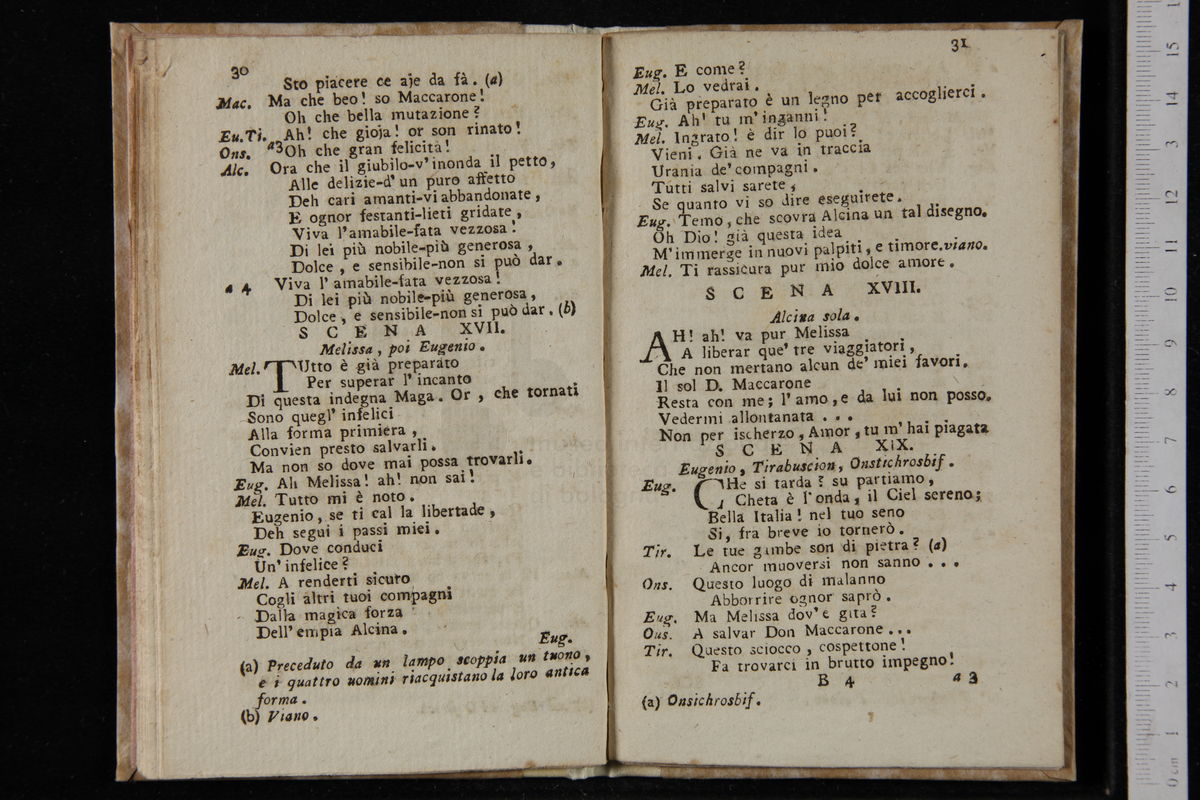 30
Sto piacere ce aje da fà. (a)
Mac. Ma che beo! so Maccarone!
Oh che bella mutazione?
Eu.Ti. Ah! che gioja! or son rinato!
Ons. a3 Oh che gran felicità!
Alc. Ora che il giubilo-v'inonda il petto,
Alle delizie-d'un puro affetto
Deh cari amanti-vi abbandonate,
E ognor festanti-lieti gridate,
Viva l'amabile-fata vezzosa!
Di lei più nobile-più generosa,
Dolce, e sensibile-non si può dar.
a 4 Viva l'amabile-fata vezzosa!
Di lei più nobile-più generosa,
Dolce, e sensibile-non si può dar. (b)
SCENA XVII.
Melissa, poi Eugenio.
Mel. TUtto è già preparato
Per superar l'incanto
Di questa indegna Maga. Or, che tornati
Sono quegl' infelici
Alla forma primiera,
Convien presto salvarli.
Ma non so dove mai possa trovarli.
Eug. Ah Melissa! ah! non sai!
Mel. Tutto mi è noto.
Eugenio, se ti cal la libertade,
Deh segui i passi miei.
Eug. Dove conduci
Un' infelice?
Mel. A renderti sicuro
Cogli altri tuoi compagni
Dalla magica forza
Dell' empia Alcina.
Eug.
(a) Preceduto da un lampo scoppia un tuono,
e i quattro uomini riacquistano la loro antica
forma.
(b) Viano.
31
Eug. E come?
Mel. Lo vedrai.
Già preparato è un legno per accoglierci.
Eug. Ah! tu m'inganni!
Mel. Ingrato! è dir lo puoi?
Vieni. Già ne va in traccia
Urania de' compagni.
Tutti salvi sarete,
Se quanto vi so dire eseguirete.
Eug. Temo, che scovra Alcina un tal disegno.
Oh Dio! già questa idea
M'immerge in nuovi palpiti, e timore. viano.
Mel. Ti rassicura pur mio dolce amore.
SCENA XVIII.
Alcina sola.
AH! ah! va pur Melissa
A liberar que' tre viaggiatori,
Che non mertano alcun de' miei favori.
Il sol D. Maccarone
Resta con me; l'amo, e da lui non posso.
Vedermi allontanata . . .
Non per ischerzo, Amor, tu m'hai piagata
SCENA XIX.
Eugenio, Tirabuscion, Onstichrosbif.
Eug. CHe si tarda? su partiamo,
Cheta è l'onda, il Ciel sereno;
Bella Italia! nel tuo seno
Si, fra breve io tornerò.
Tir. Le tue gambe son di pietra? (a)
Ancor muoversi non sanno . . .
Ons. Questo luogo di malanno
Abborrire ognor saprò.
Eug. Ma Melissa dov'e gita?
Ons. A salvar Don Maccarone...
Tir. Questo sciocco, cospettone!
Fa trovarci in brutto impegno!
B 4 a 3
(a) Onsichrosbif.